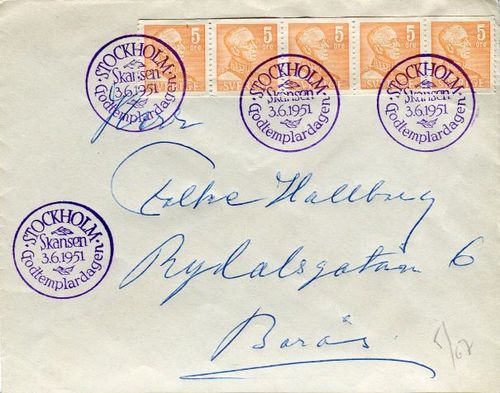 5 öre 5 öre 5 öre 5 öre 5 öre
STOCKHOLM
Skansen
3.6.1951
Godtemplardagen
STOCKHOLM
Skansen
3.6.1951
Godtemplardagen
STOCKHOLM
Skansen
3.6.1951
Godtemplardagen
Herr
Folke Hallberg
Rydalsgatan 6
Borås.
STOCKHOLM
Skansen
3.6.1951
Godtemplardagen